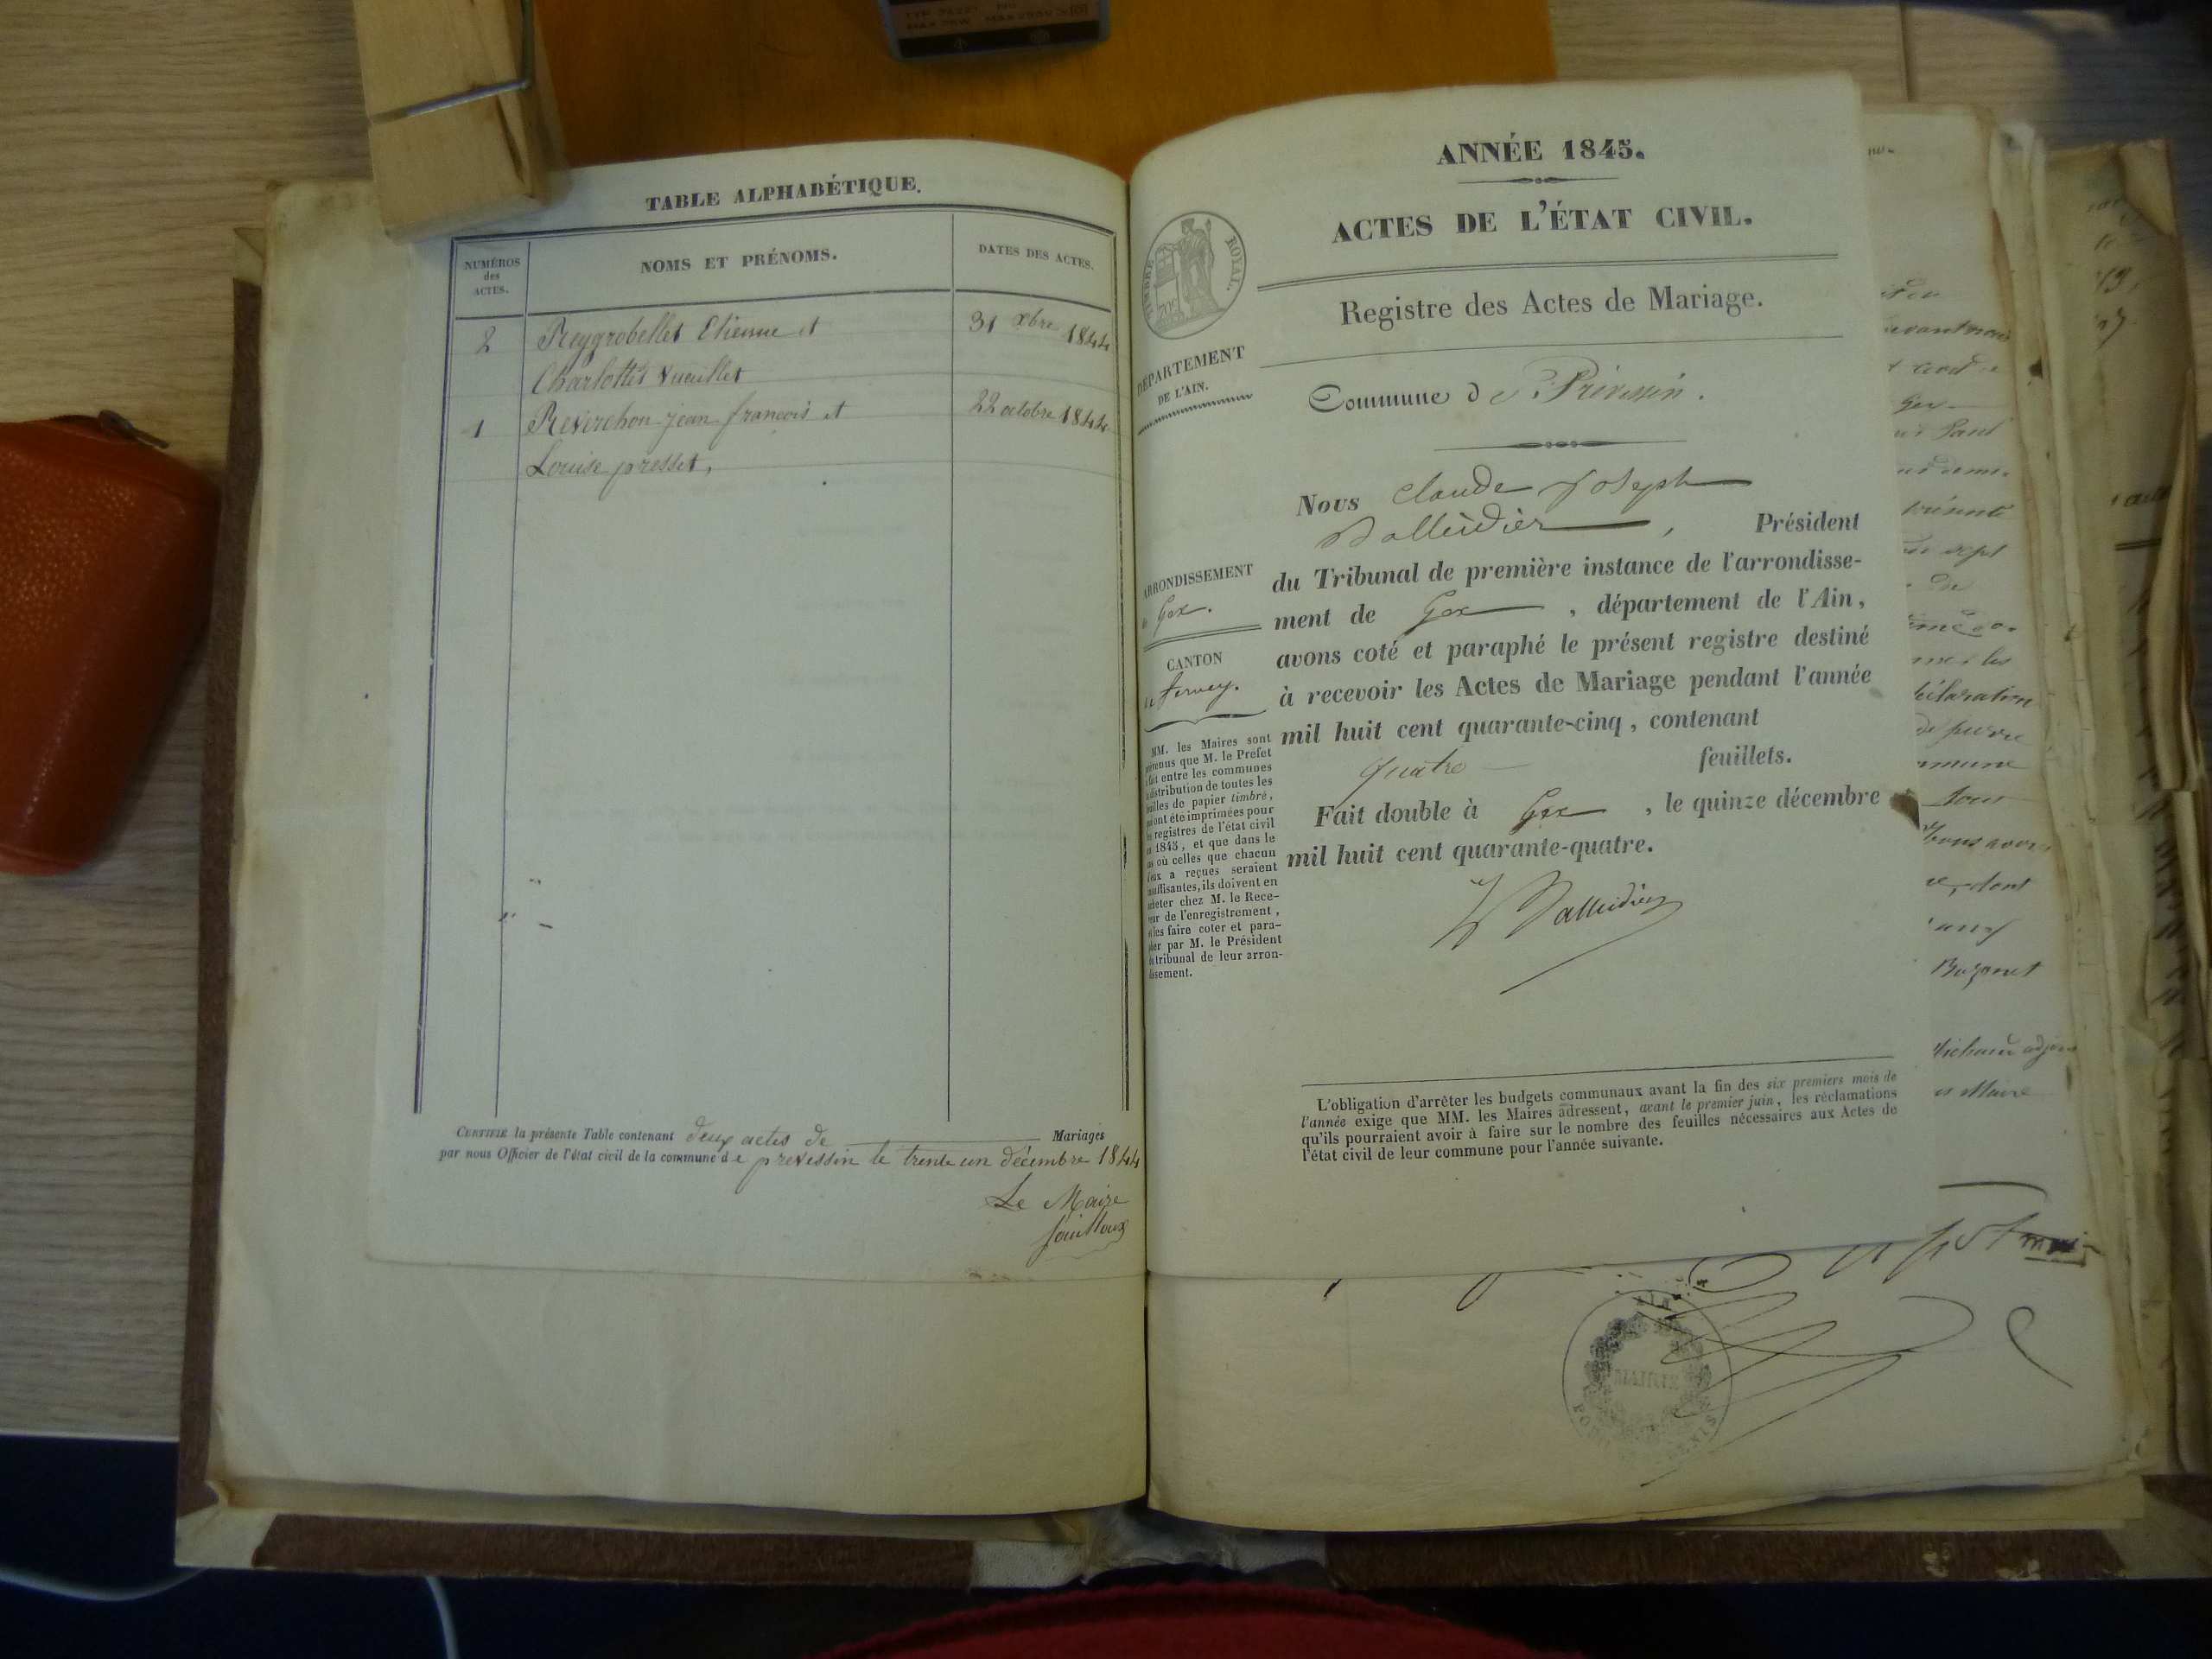 TABLE ALPHABÉTIQUE.
NUMÉROS
des
ACTES.
NOMS ET PRÉNOMS.
DATES DES ACTES.
2 Reygrobellet Etienne et 31 xbre 1844
Charlotte Vueillet
1 Reverchon jean francois et 22 octobre 1844
Louise presset,
CERTIFIÉ la présente Table contenant deux actes de Mariages
par nous Officier de l'état civil de la commune de prevessin le trente un décembre 1844
Le Maire
fouilloux
ANNÉE 1845.
ACTES DE L'ÉTAT CIVIL.
TIMBRE ROYAL.
Registre des Actes de Mariage.
DÉPARTEMENT
DE L'AIN.
Commune de Prévessin.
ARRONDISSEMENT
Gex.
CANTON
de ferney.
MM. les Maires sont
prévenus que M. le Préfet
fait entre les communes
distribution de toutes les
feuilles de papier timbré,
qui ont été imprimées pour
registres de l'état civil
1845, et que dans le
cas où celles que chacun
d'eux a reçues seraient
insuffisantes, ils doivent en
acheter chez M. le Rece-
veur de l'enregistrement,
et les faire coter et para-
pher par M. le Président
du tribunal de leur arron-
dissement.
Nous Claude Joseph
Balleidier, Président
du Tribunal de première instance de l'arrondisse-
ment de Gex, département de l'Ain,
avons coté et paraphé le présent registre destiné
à recevoir les Actes de Mariage pendant l'année
mil huit cent quarante-cinq, contenant
quatre feuillets.
Fait double à Gex, le quinze décembre
mil huit cent quarante-quatre.
Balleidier
L'obligation d'arrêter les budgets communaux avant la fin des six premiers mois de
l'année exige que MM. les Maires adressent, avant le premier juin, les réclamations
qu'ils pourraient avoir à faire sur le nombre des feuilles nécessaires aux Actes de
l'état civil de leur commune pour l'année suivante.
MAIRIE